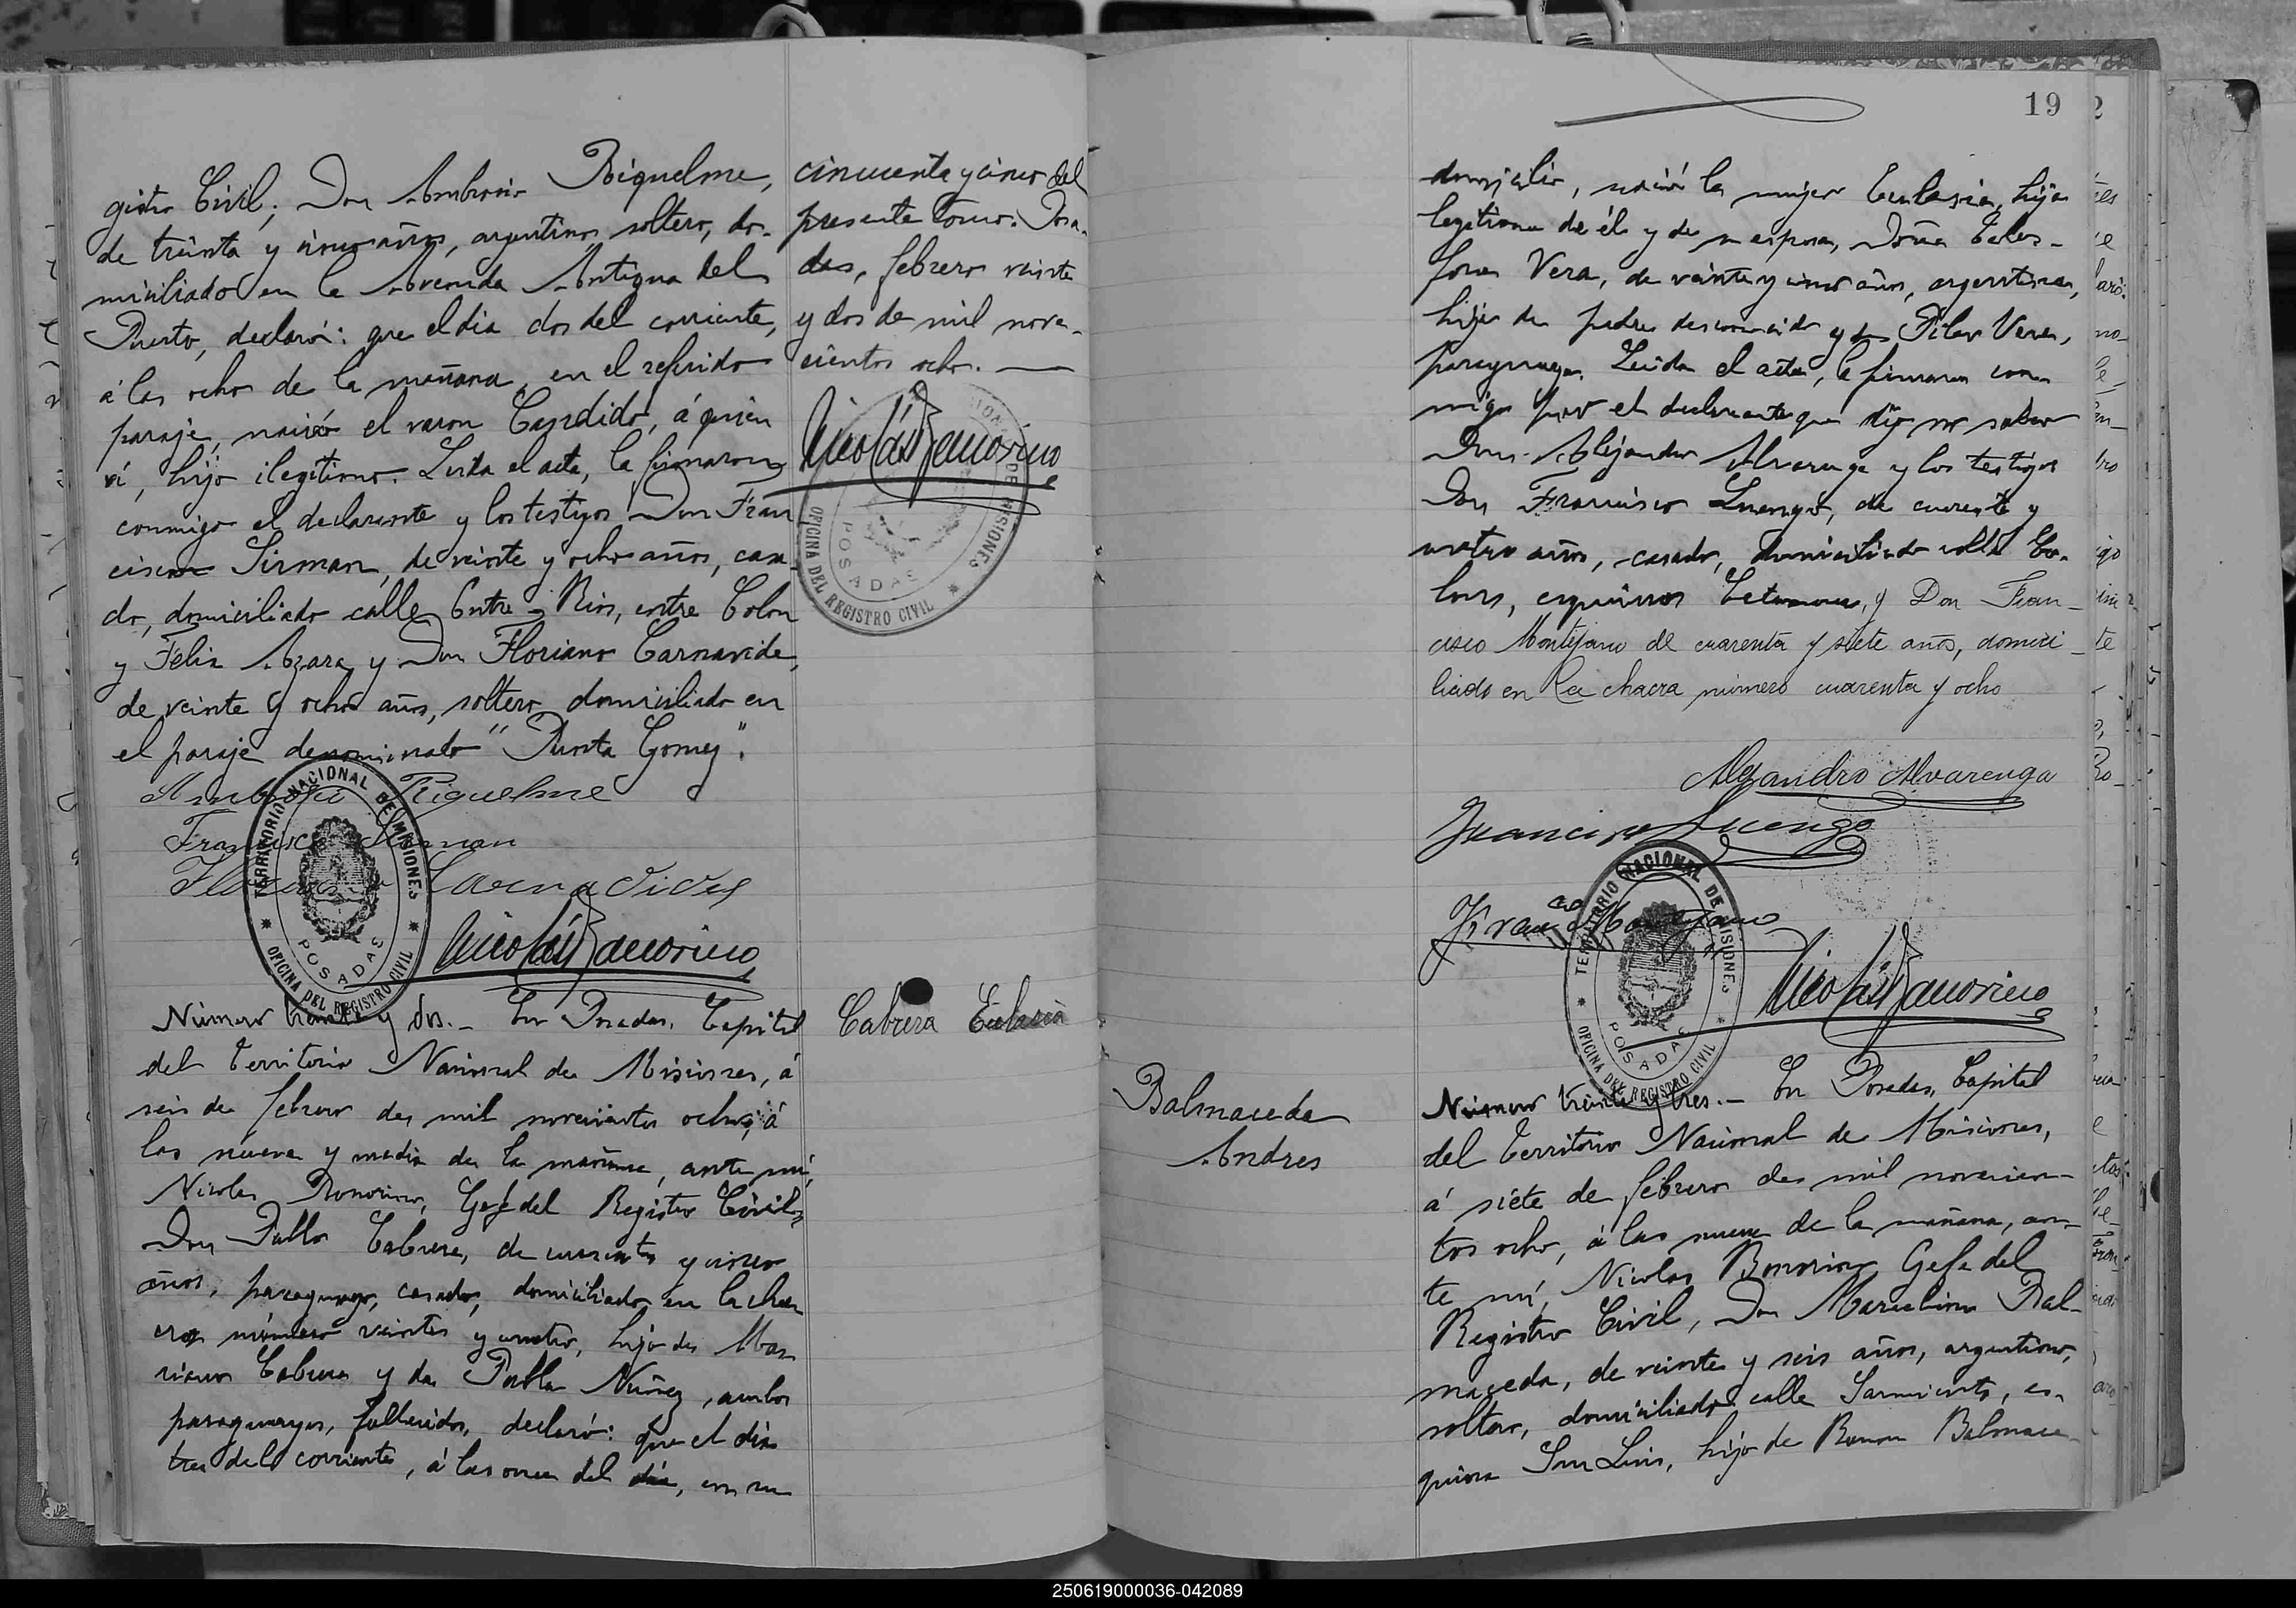 gistro Civil, Don Ambrosio Riquelme,
de treinta y cinco años, argentino soltero, do-
miciliado en la Avenida Antigua del
Puerto, declaró: que el dia dos del corriente,
á las ocho de la mañana, en el referido
paraje, nació el varon Candido, á quien
ví, hijo ilegítimo. Leida el acta, la firmaron
conmigo el declarante y los testigos Don Fran
cisco Sirman, de veinte y ocho años, casa-
do, domiciliado calle Entre-Rios, entre Colon
y Félix Azara, y Don Floriano Carnavide,
de veinte y ocho años, soltero, domiciliado en
el paraje denominado "Punta Gomez".
cincuenta y cinco del
presente tomo. Posa-
das, febrero veinte
y dos de mil nove-
cientos ocho.
Nicolás Bonorino
OFICINA DEL REGISTRO CIVIL
POSADAS
Riquelme
Francisco Sirman
TERRITORIO NACIONAL DE MISIONES
OFICINA DEL REGISTRO CIVIL
POSADAS
Nicolás Bonorino
Número treinta y dos.- En Posadas, Capital
del Territorio Nacional de Misiones, á
seis de febrero de mil novecientos ocho, á
las nueve y media de la mañana, ante mí,
Nicolas Bonorino, Gefe del Registro Civil,
Don Pablo Cabrera, de cuarenta y cinco
años, paraguayo, casado, domiciliado en la cha-
cra número veinte y cuatro, hijo de Ma-
riano Cabrera y de Pabla Nuñez, ambos
paraguayos, fallecidos, declaró: que el dia
tres del corriente, á las once del dia, en su
Cabrera Eulasia
19
domicilio, nació la mujer Eulasia, hija
legitima de él y de su esposa, Doña Teles-
fora Vera, de veinte y cinco años, argentina,
hija de padre desconocido y de Pilar Vera,
paraguaya. Leida el acta, la firmaron con-
migo por el declarante que dijo no saber
Don Alejandro Alvarenga y los testigos
Don Francisco Luengo, de cuarenta y
cuatro años, casado, domiciliado calle Co-
lon, esquina Catamarca, y Don Fran-
cisco Montejano de cuarenta y siete años, domici-
liado en la chacra número cuarenta y ocho
Alejandro Alvarenga
Francisco Luengo
Franco Montejano
TERRITORIO NACIONAL DE MISIONES
OFICINA DEL REGISTRO CIVIL
POSADAS
Nicolás Bonorino
Balmaceda
Andres
Número treinta y tres.- En Posadas, Capital
del Territorio Nacional de Misiones,
á siete de febrero de mil novecien-
tos ocho, á las nueve de la mañana, an-
te mí, Nicolas Bonorino, Gefe del
Registro Civil, Don Marcelino Bal-
maceda, de veinte y seis años, argentino,
soltero, domiciliado calle Sarmiento, es-
quina San Luis, hijo de Ramon Balmace-
250619000036-042089